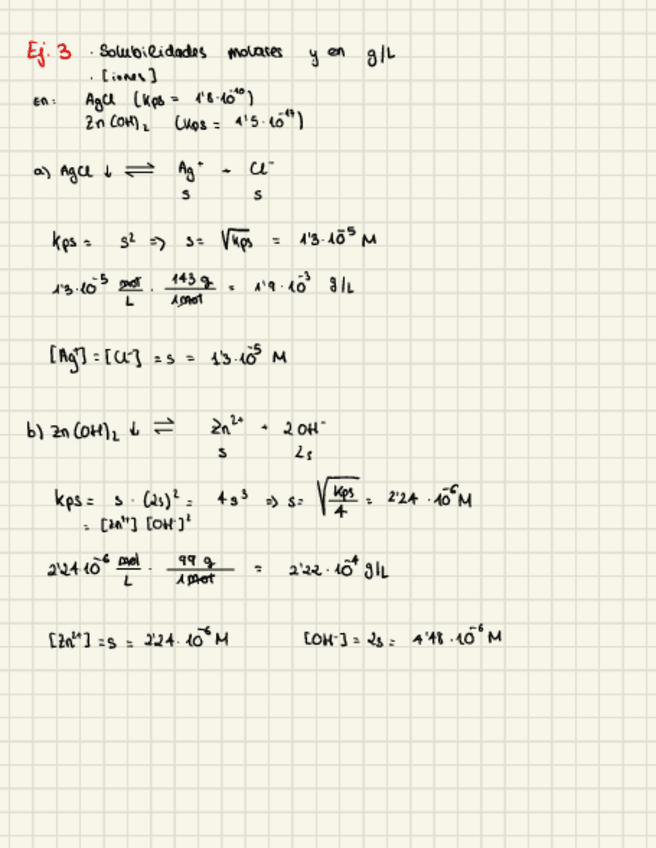 Ej. 3 · Solubilidades molares y en g/L
· [iones]
En: AgCl (Kps = 1'8·10⁻¹⁰)
Zn(OH)₂ (Kps = 4'5·10⁻¹⁷)
a) AgCl ↓ ⇌ Ag⁺ + Cl⁻
s s
kps = s² => s = √kps = 1'3·10⁻⁵ M
1'3·10⁻⁵ mol/L · 143 g/1 mol = 1'9·10⁻³ g/L
[Ag⁺] = [Cl⁻] = s = 1'3·10⁻⁵ M
b) Zn(OH)₂ ↓ ⇌ Zn²⁺ + 2OH⁻
s 2s
kps = s · (2s)² = 4s³ => s = √kps/4 = 2'24·10⁻⁶ M
= [Zn²⁺] [OH⁻]²
2'24·10⁻⁶ mol/L · 99 g/1 mol = 2'22·10⁻⁴ g/L
[Zn²⁺] = s = 2'24·10⁻⁶ M [OH⁻] = 2s = 4'48·10⁻⁶ M